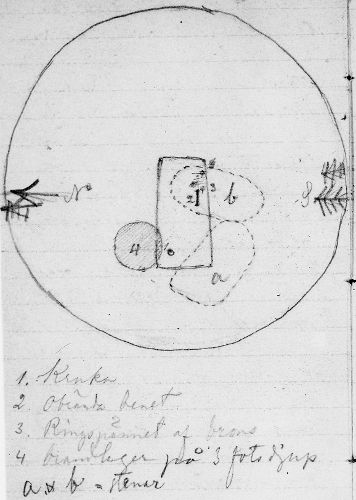 N
S
1
2
3
b
4
6
a
1. Kruka
2. Obrända benet
3. Ringspännet af brons
4 Brandlager på 3 fots djup
a & b = stenar